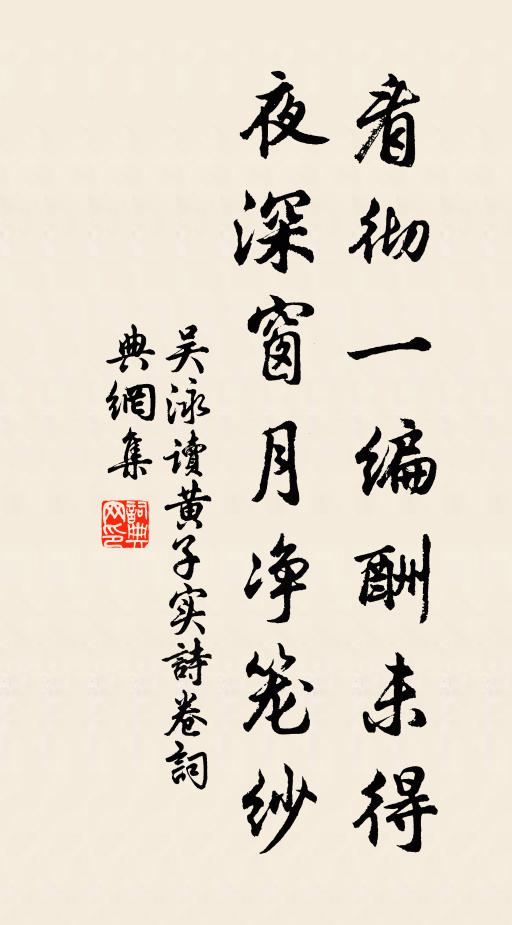 看彻一编酬未得
夜深窗月净笼纱
吴泳读黄子实詩卷詞
典網集
詞典网印